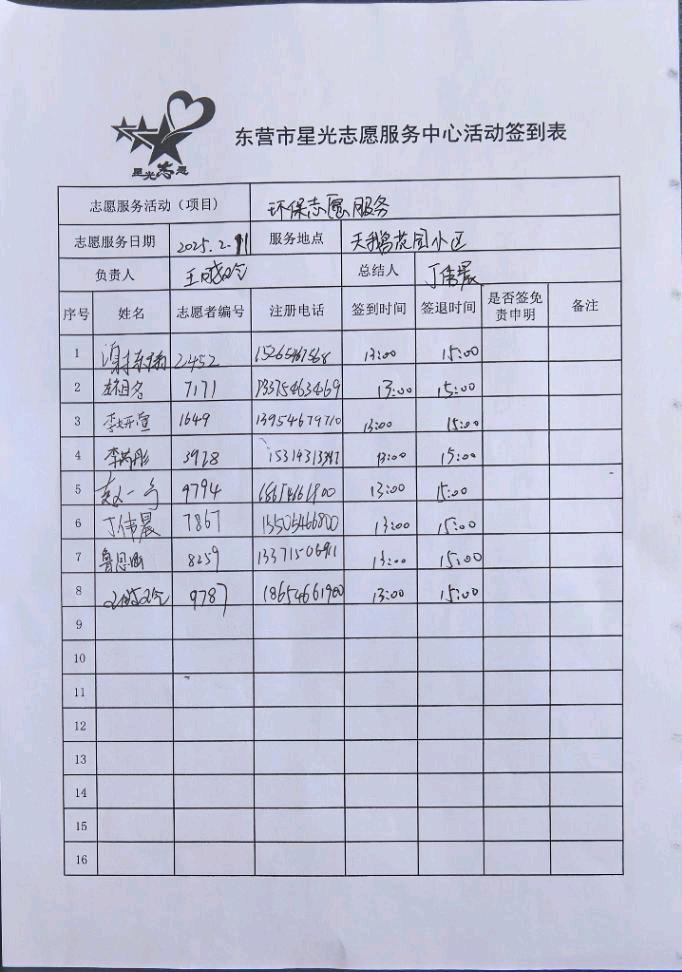 星光志愿
东营市星光志愿服务中心活动签到表
志愿服务活动（项目） 环保志愿服务
志愿服务日期 2025.2.11 服务地点 天鹅花园小区
负责人 王 总结人 丁伟晨
序号 姓名 志愿者编号 注册电话 签到时间 签退时间 是否签免责申明 备注
1 2452 13:00 15:00
2 7171 13375463469 13:00 15:00
3 李妍萱 1649 13954679710 13:00 15:00
4 李芮彤 3928 13:00 15:00
5 9794 18654661900 13:00 15:00
6 丁伟晨 7867 15505466800 13:00 15:00
7 鲁思涵 8259 13:00 15:00
8 9787 18654661900 13:00 15:00
9
10
11
12
13
14
15
16